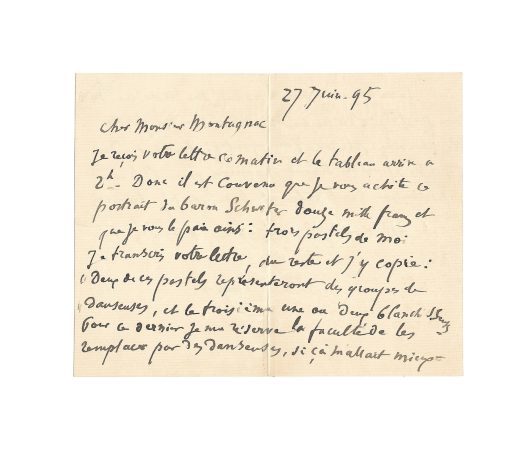 27 Juin. 95
Cher Monsieur Montagnac
Je reçois votre lettre ce matin et le tableau arrive a
2h. Donc il est convenu que je vous achète ce
portrait du baron Schwiter douze mille francs et
que je vous le paie ainsi : trois pastels de moi
Je transcris votre lettre, du reste et j'y copie :
« Deux de ces pastels représenteront des groupes de
danseuses, et le troisième une ou deux blanch
Pour ce dernier je me réserve la faculté de les
remplacer par des danseuses, si ça m'allait mieux =